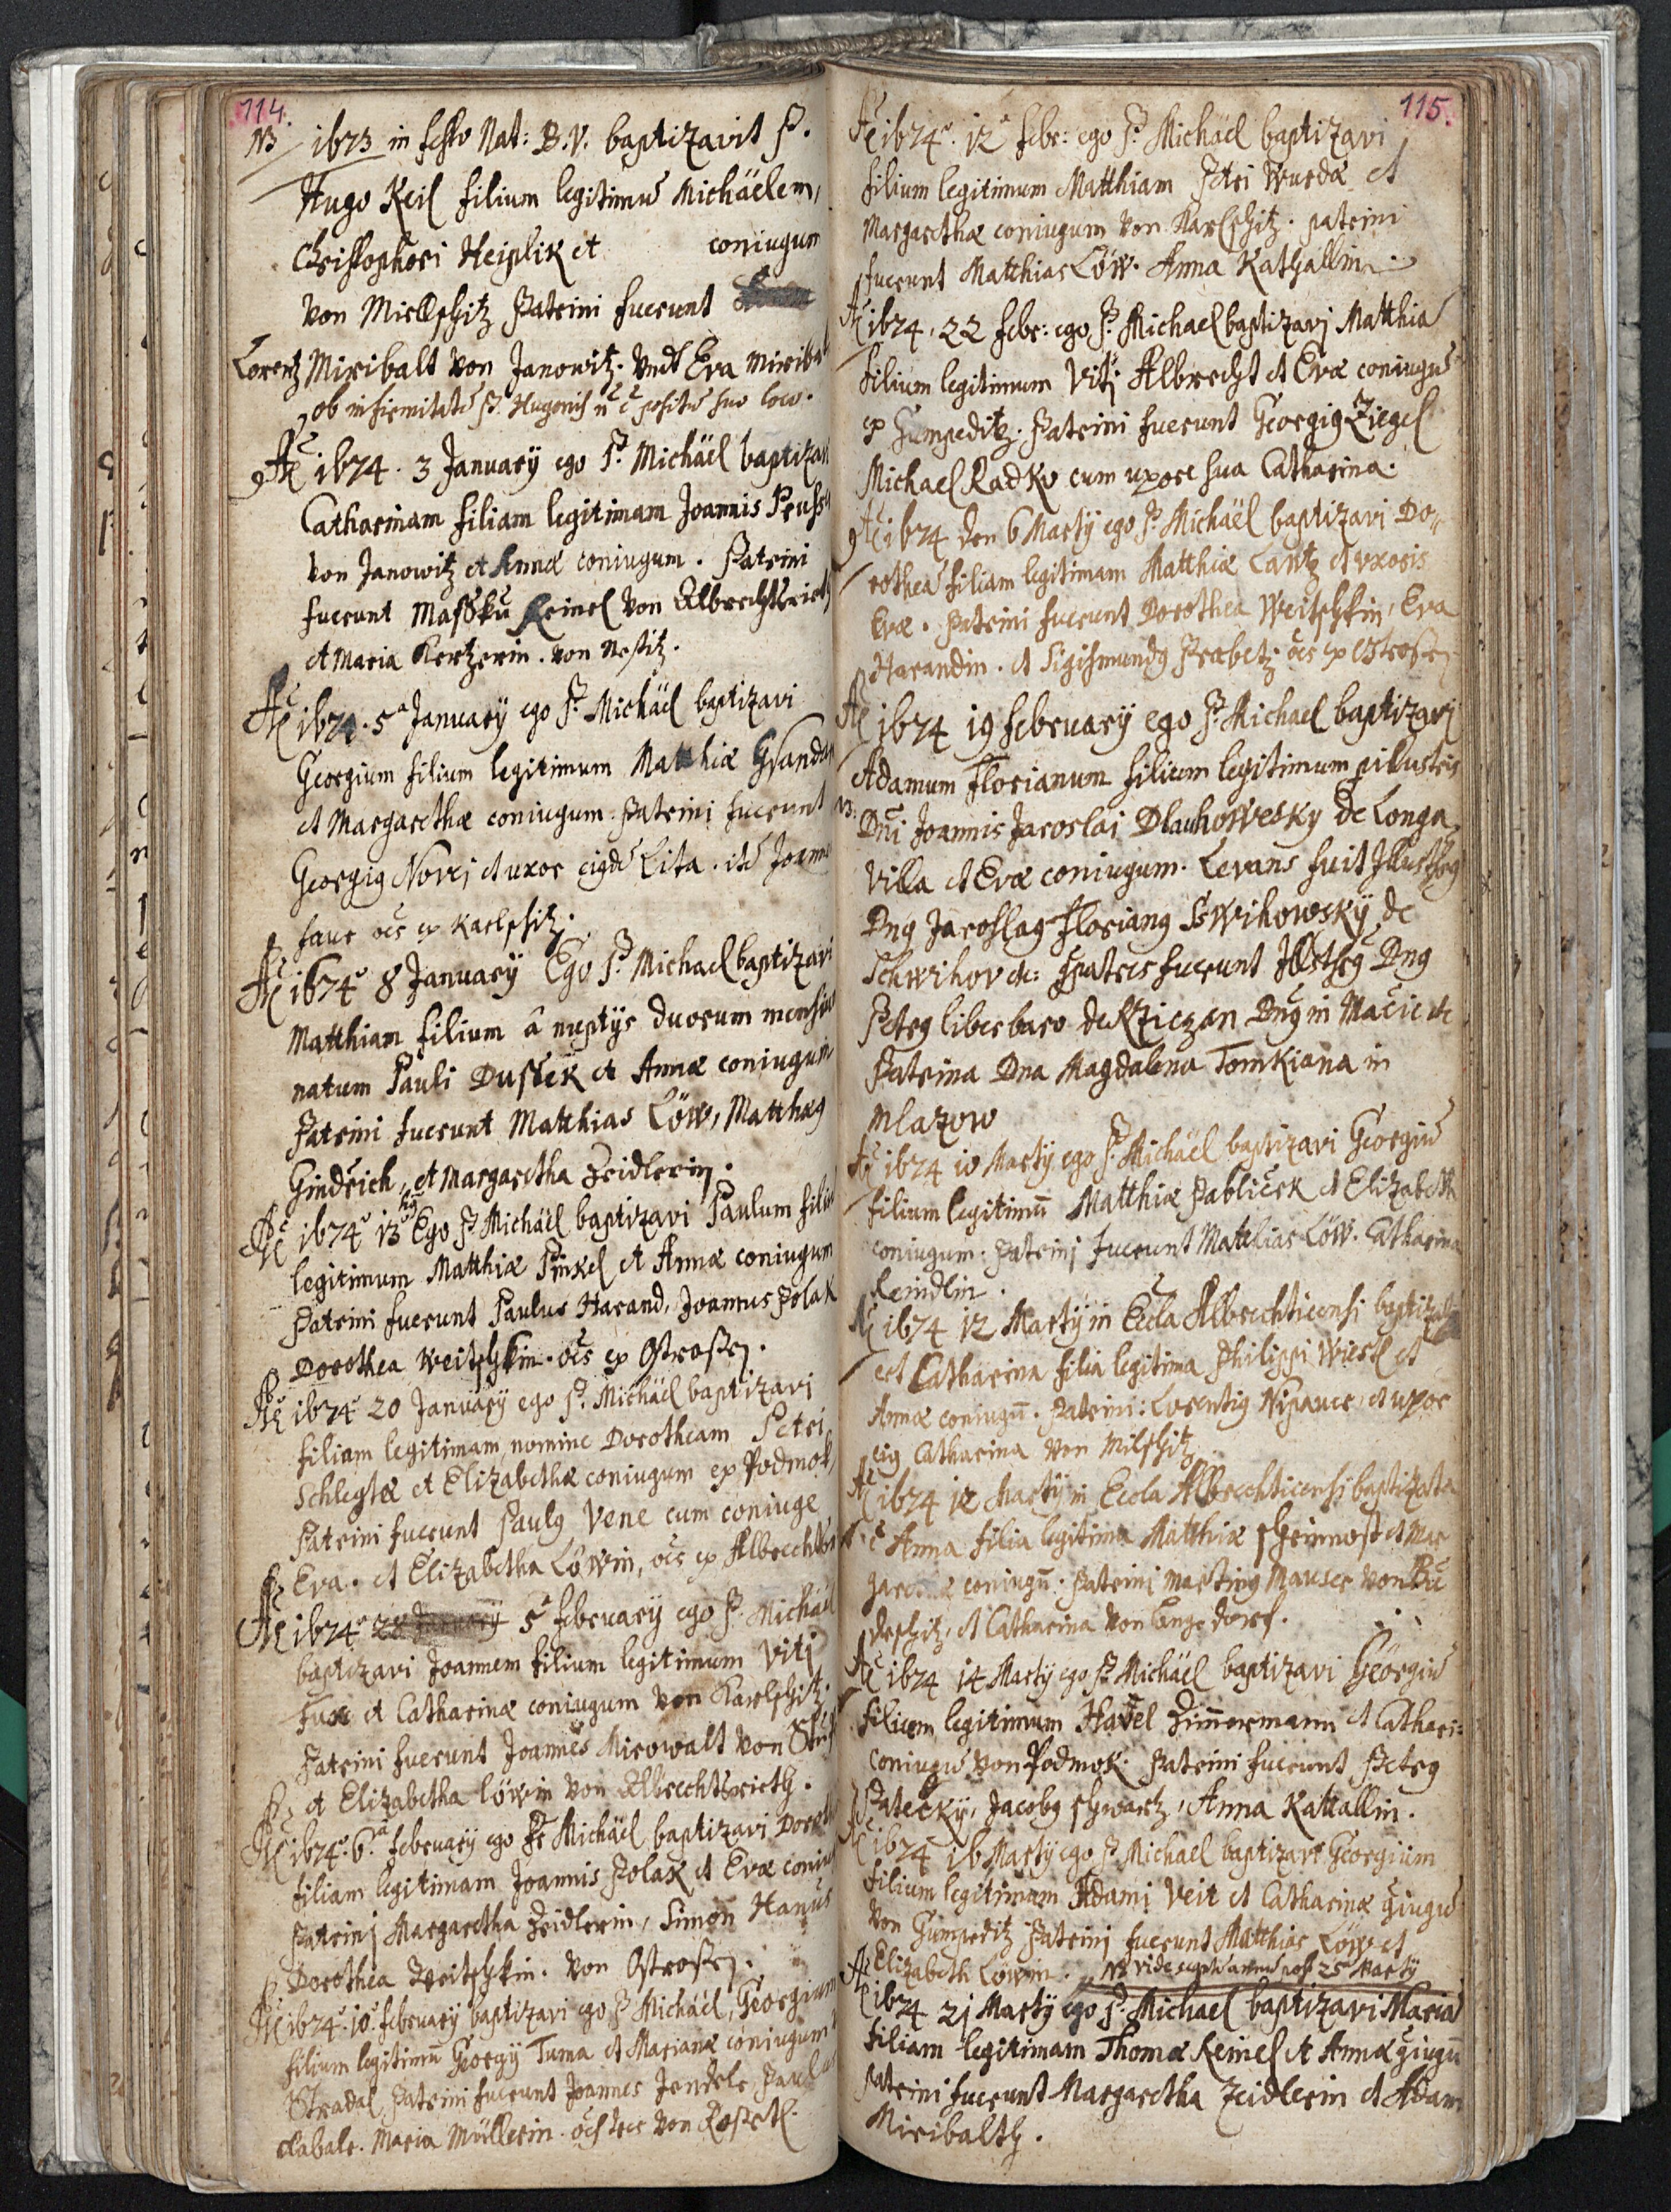 114.
NB 1673 in festo Nat: B.V. baptizavit P.
Hugo Keil filium legitimū Michäelem,
Christophori Heiplik et coniugum
von Miellschitz Patrini fuerunt
Lorentz Miribalt von Janowitz. Vndt Eva
ob infirmitatē P. Hugonis positū suo loco.
Aō 1674. 3 January ego P. Michäel baptizavi
Catharinam filiam legitimam Joannis
von Janowitz et Annæ coniugum. Patrini
fuerunt Reinel von
et Maria Kertzerin. von
Aō 1674. 5a January ego P. Michäel baptizavi
Georgium filium legitimum Matthiæ
et Margarethæ coniugum. Patrini fuerunt
et uxor Lita.
ex Karlschitz.
Aō 1674 8 January Ego P. Michael baptizavi
Matthiam filium â nuptÿs duorum
natum Pauli Dussek et Annæ coniugum
Patrini fuerunt Matthias Löw, Matthæ9
Gindrich, et Margaretha Zeidlerin.
Aō 1674 13 Ego P. Michäel baptizavi Paulum
legitimum Matthiæ Pinkel et Annæ coniugum
Patrini fuerunt Paulus Harand, Joannes Polak
Dorothea Weitschkin. oēs ex
Aō 1674 20 January ego P. Michäel baptizavi
filiam legitimam nomine Dorotheam Petri
et Elizabethæ coniugum ex Podmok,
Patrini fuerunt Paul9 Vene cum coniuge
Eva. et Elizabetha Löwin, oēs ex
Aō 1674 5a February ego P. Michäel
baptizavi Joannem filium legitimum Viti
Fux et Catharinæ coniugum von Karlschitz.
Patrini fuerunt Joannes Mirowalt von
et Elizabetha löwin von Albrechtsrieth.
Aō 1674. 6a February ego Michäel baptizavi
filiam legitimam Joannis Polak et Evæ
Patrini Margaretha Zeidlerin, Simon Hanus
Dorothea Weitschkin. von
Aō 1674. 10. February baptizavi ego P Michäel, Georgium
filium legitimū Georgÿ Tuma et Marianæ coniugum
Stradal Patrini fuerunt Joannes Jendele
Maria Müllerin. von
115.
Aō 1674. 12a febr: ego P. Michäel baptizavi
filium legitimum Matthiam Petri et
Margarethæ coniugum von Karlschitz. patrini
fuerunt Matthias Löw. Anna Kathallin.
Aō 1674. 22 febr: ego P. Michael baptizavi Matthiā
filium legitimum Viti Albrecht et Evæ coniugū
ex Gumpeditz. Patrini fuerunt Georgi9 Ziegel
Michael Radko cum uxore sua Catharina.
Aō 1674 den 6 Marty ego P. Michäel baptizavi Do-
rotheā filiam legitimam Matthiæ Lantz et uxoris
Evæ. Patrini fuerunt Dorothea Weitschkin, Eva
Harandin. et Sigismund9 oēs ex
Aō 1674 19 february ego P. Michael baptizavi
Adamum Florianum filium legitimum Illustris
NB. Dni Joannis Jaroslai Dlauhowesky de Longa
Villa et Evæ coniugum. Levans fuit
Dn9 Jarosla9 Florian9 Swihowskÿ de
Schwihov etc: Patres fuerunt Dn9
Petr9 liber baro de Rziczan Dn9 in
Patrina Dna Magdalena Tomkiana in
Mlazow
Aō 1674 10 Marty ego P. Michäel baptizavi Georgiū
filium legitimū Matthiæ Pabliček et Elizabeth
coniugum. Patrini fuerunt Matthias Löw. Catharina
Reindlin.
Aō 1674 12 Marty in Eccla Albrechticensi baptizata
est Catharina filia legitima Philippi et
Annæ coniugū. Patrini: Laurenti9 et uxor
ei9 Catharina von Milschitz
Aō 1674 12 Marty in Eccla Albrechticensi baptizata
ē Anna filia legitima Matthiæ et Mar
garethæ coniugū. Patrini Martin9 Mauser von
et Catharina von Langedorf.
Aō 1674 14 Marty ego P. Michäel baptizavi Georgiū
filium legitimum Havel Zimmermann et Cathari:
coniugū von Podmok. Patrini fuerunt Petr9
Patecky, Jacob9 schwartz, Anna Kattallin.
Aō 1674 16 Marty ego P. Michael baptizavi Georgium
filium legitimum Adami Veit et Catharinæ
von Gumpeditz Patrini fuerunt Matthias Löw et
Elizabeth Löwin. NB vide post 25 Marty
Aō 1674 21 Marty ego P. Michael baptizavi Mariā
filiam legitimam Thomæ Reinel et Annæ
Patrini fuerunt Margaretha Zeidlerin et Adam
Miribalth.